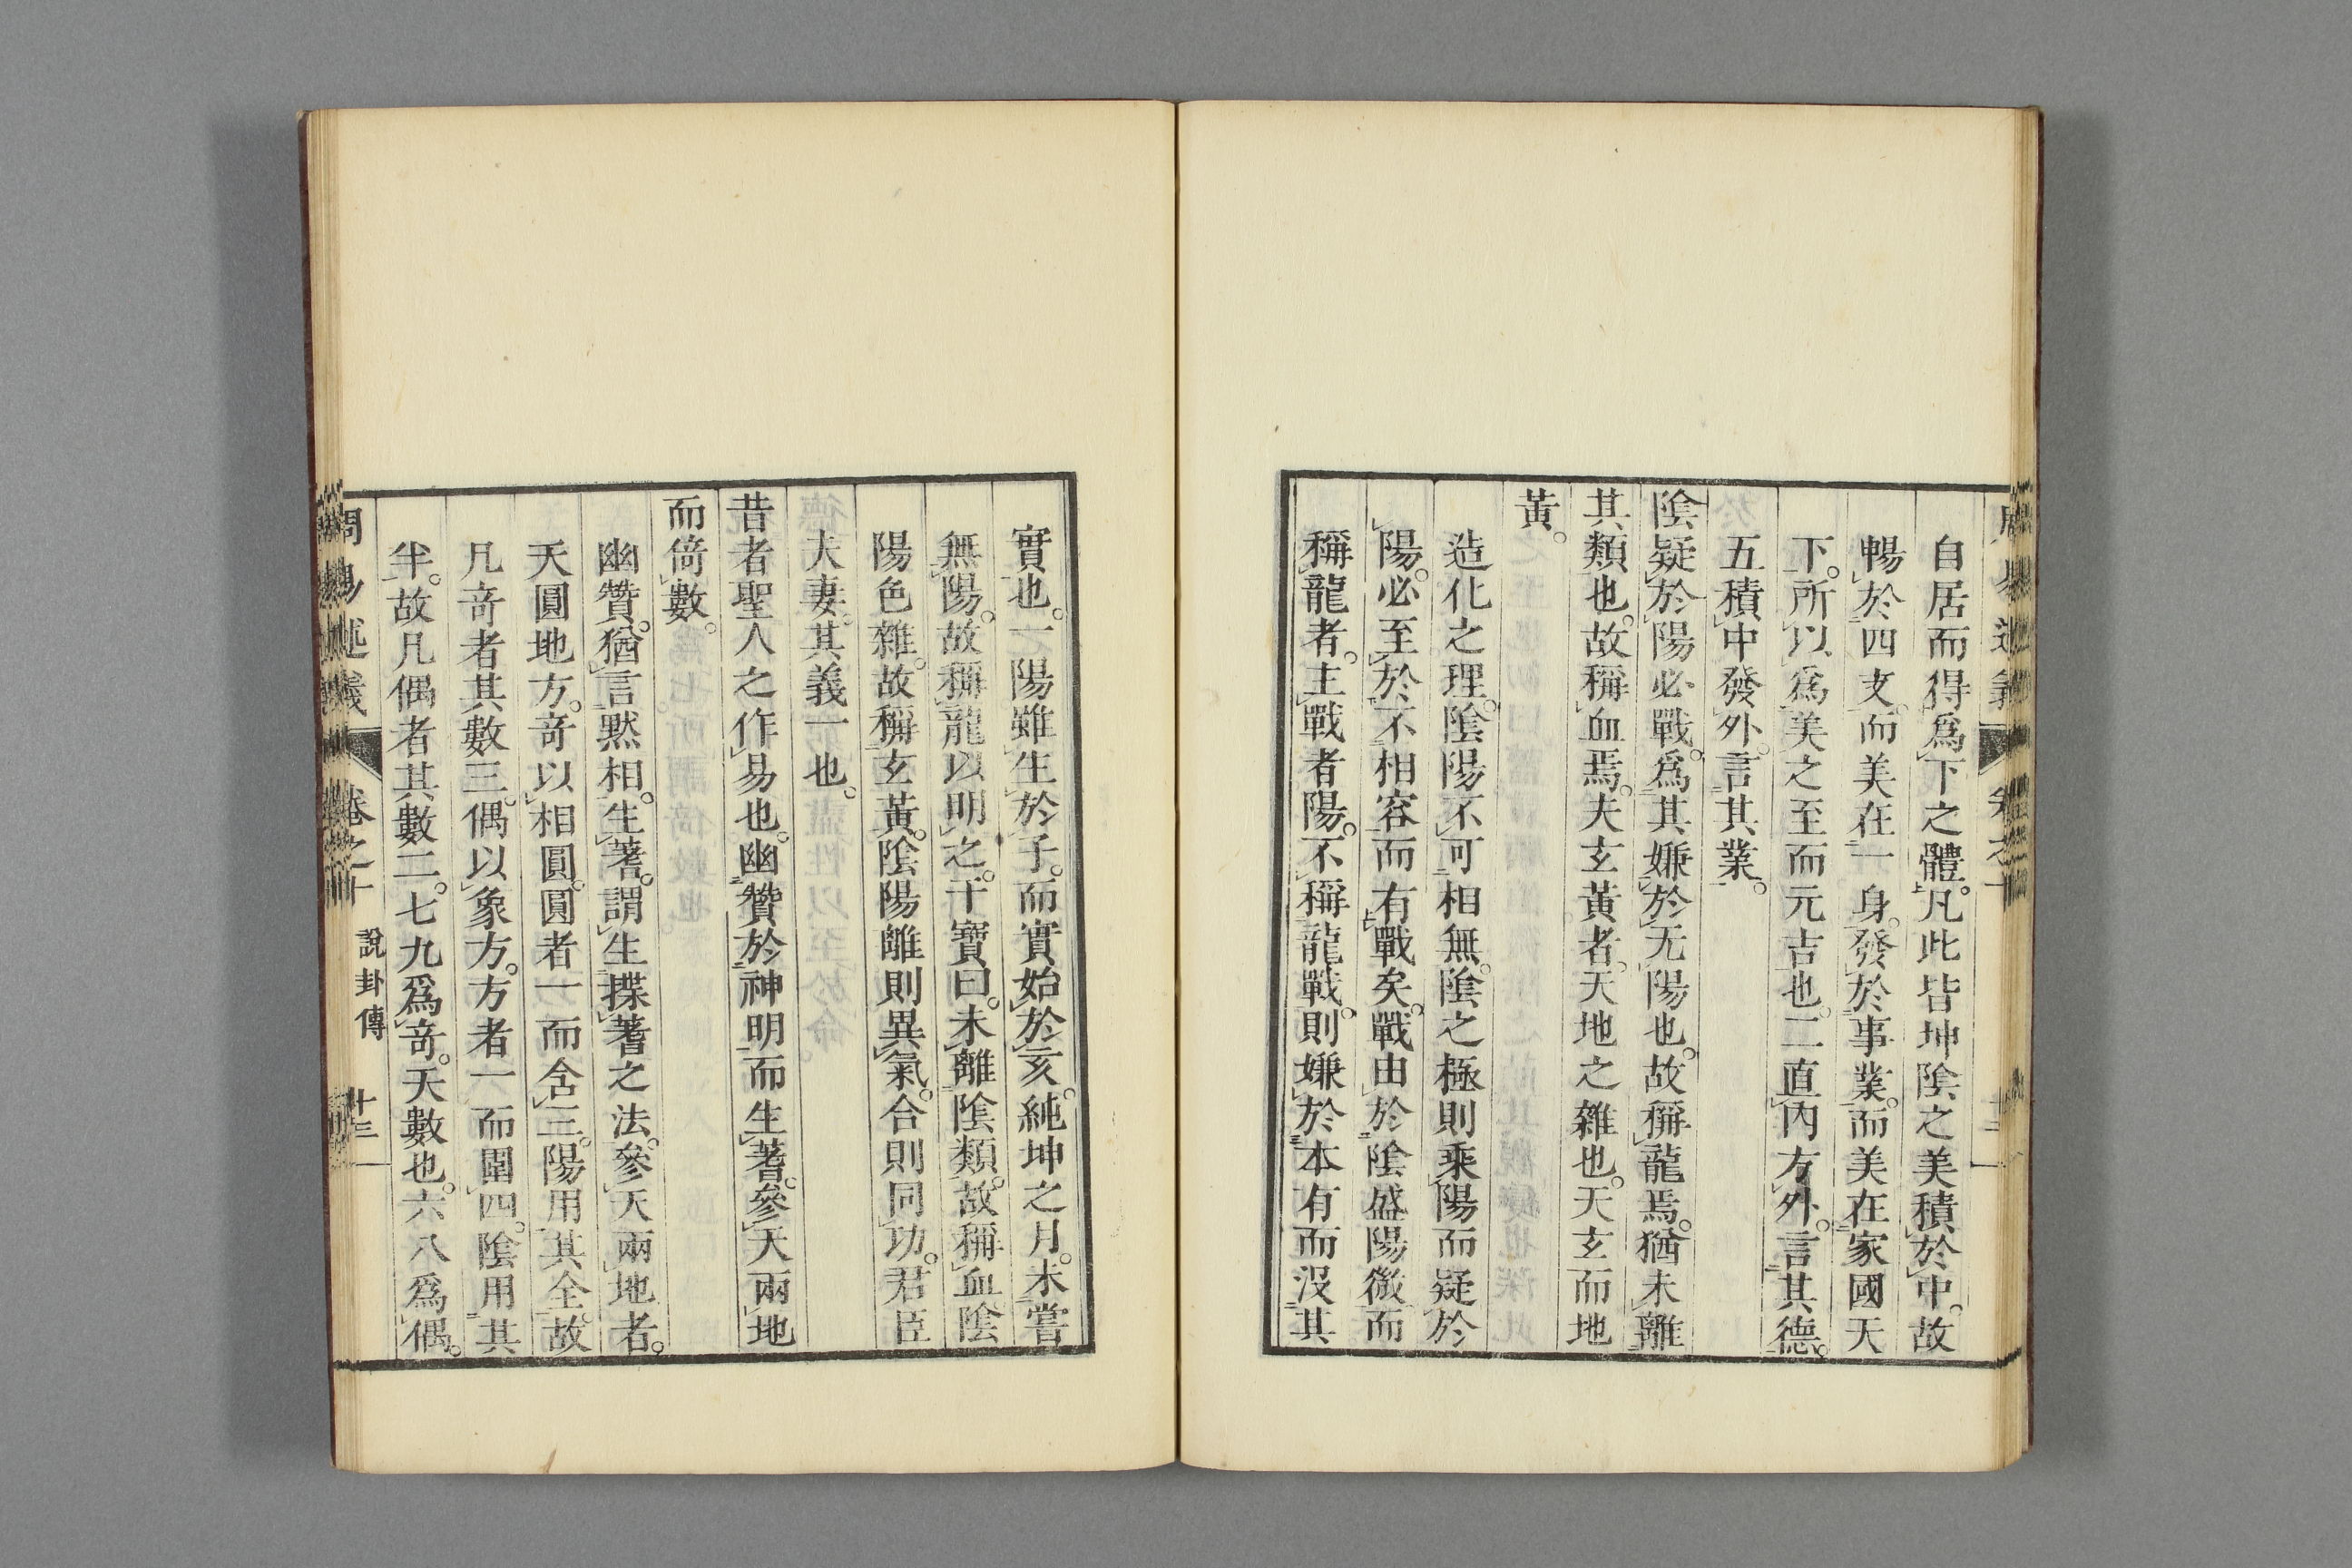 自居而得爲下之體。凡此皆坤陰之美積於中。故
暢於四支。而美在一身。發於事業。而美在家國天
下。所以爲美之至而元吉也。二直內方外。言其德。
五積中發外。言其業。
陰疑於陽必戰。爲其嫌於无陽也。故稱龍焉。猶未離
其類也。故稱血焉。夫玄黃者。天地之雜也。天玄而地
黃。
造化之理。陰陽不可相無。陰之極則乘陽而疑於
陽。必至於不相容而有戰矣。戰由於陰盛陽微而
稱龍者。主戰者陽。不稱龍戰。則嫌於本有而沒其
實也。一陽雖生於子。而實始於亥。純坤之月。未嘗
無陽。故稱龍以明之。干寶曰。未離陰類。故稱血陰
陽色雜。故稱玄黃。陰陽離則異氣。合則同功。君臣
夫妻。其義一也。
昔者聖人之作易也。幽贊於神明而生蓍。參天兩地
而倚數。
幽贊。猶言黙相。生蓍。謂生揲蓍之法。參天兩地者。
天圓地方。竒以相圓。圓者一而含三。陽用其全。故
凡竒者其數三。偶以象方。方者一而圍四。陰用其
半。故凡偶者其數二。七九爲竒。天數也。六八爲偶。
周易述義 卷之十 說卦傳 十三